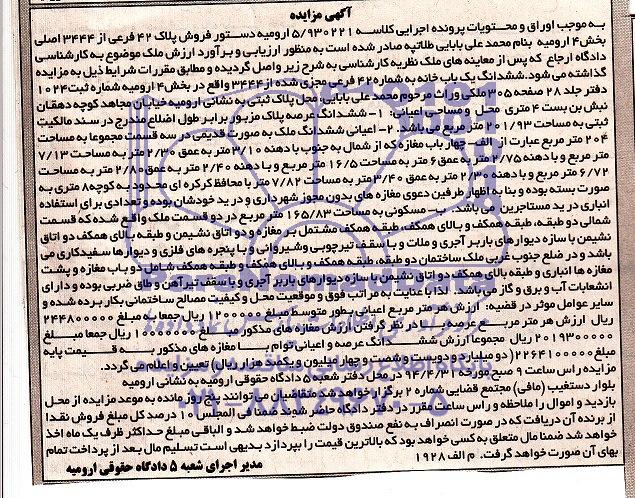 آگهی مزایده
به موجب اوراق و محتویات پرونده اجرایی کلاسه ۵/۹۳۰۲۲۱ ارومیه دستور فروش پلاک ۴۲ فرعی از ۳۴۴۴ اصلی
بخش ۴ ارومیه بنام محمد علی بابایی طلاتپه صادر شده است به منظور ارزیابی و برآورد ارزش ملک موضوع به کارشناسی
دادگاه ارجاع که پس از معاینه های ملک نظریه کارشناسی به شرح زیر واصل گردیده و مطابق مقررات شرایط ذیل به مزایده
گذاشته می شود. ششدانگ یک باب خانه به شماره ۴۲ فرعی مجزی شده از ۳۴۴۴ واقع در بخش ۴ ارومیه شماره ثبت ۱۰۲۴
دفتر جلد ۲۸ صفحه ۳۰۵ ملکی وراث مرحوم محمد علی بابایی: محل پلاک ثبتی به نشانی ارومیه خیابان مجاهد کوچه دهقان
نبش بن بست ۴ متری محل و مساحی اعیانی: ۱- ششدانگ عرصه پلاک مزبور برابر طول اضلاع مندرج در سند مالکیت
ثبتی به مساحت ۲۰۱/۹۳ متر مربع می باشد. ۲- اعیانی ششدانگ ملک به صورت قدیمی در سه قسمت مجموعا به مساحت
۲۰۴ متر مربع عبارت از: الف- چهار باب مغازه که از شمال به جنوب با دهنه ۳/۱۰ متر به عمق ۲/۳۰ متر به مساحت ۷/۱۳
متر مربع و با دهنه ۲/۷۵ متر به عمق ۶ متر به مساحت ۱۶/۵ متر مربع و با دهنه ۲/۴۰ متر به عمق ۲/۸۰ متر به مساحت
۶/۷۲ متر مربع و با دهنه ۲/۳۰ متر به عمق ۳/۴۰ متر به مساحت ۷/۸۲ متر با محافظ کرکره ای محدود به کوچه ۸ متری به
صورت بسته بوده و بنا به اظهار طرفین دعوی مغازه های بدون مجوز شهرداری و در ید خودشان بوده و تعدادی برای استفاده
انباری در ید مستاجرین می باشد. ب- مسکونی به مساحت ۱۶۵/۸۳ متر مربع در دو قسمت ملک واقع شده که قسمت
شمالی دو طبقه، طبقه همکف و بالای همکف، طبقه همکف مشتمل بر مغازه و دو اتاق نشیمن و طبقه، بالای همکف دو اتاق
نشیمن با سازه دیوارهای باربر آجری و ملات و با سقف تیرچوبی وشیروانی و با پنجره های فلزی و دیوارها سفیدکاری می
باشد و در ضلع جنوب غربی ملک ساختمان دو طبقه، طبقه همکف و بالای همکف و طبقه همکف شامل دو باب مغازه و پشت
مغازه ها انباری و طبقه بالای همکف دو اتاق نشیمن با سازه دیوارهای باربر آجری و با سقف تیرآهن و طاق ضربی بوده و دارای
انشعابات آب و برق و گاز می باشد. لذا با عنایت به مراتب فوق و موقعیت محل و کیفیت مصالح ساختمانی بکار برده شده و
سایر عوامل موثر در قضیه: ارزش هر متر مربع اعیانی بطور متوسط مبلغ ۱۲۰۰۰۰۰ ریال جمعا به مبلغ ۲۴۴۸۰۰۰۰۰
ریال ارزش هر متر مربع عرصه با در نظر گرفتن ارزش مغازه های مذکور مبلغ ۱۰۰۰۰۰۰۰ ریال جمعا مبلغ
۲۰۱۹۳۰۰۰۰۰ ریال مجموعا ارزش ششدانگ عرصه و اعیانی توام با مغازه های مذکور به قیمت پایه
مبلغ ۲۲۶۴۱۰۰۰۰۰ (دو میلیارد دویست و شصت و چهار میلیون و یکصد هزار ریال) تعیین و اعلام می گردد.
مزایده راس ساعت ۹ صبح مورخه ۹۴/۴/۲۱ در محل دفتر شعبه ۵ دادگاه حقوقی ارومیه به نشانی ارومیه
بلوار دستغیب (مافی) مجتمع قضایی شماره ۲ برگزار خواهد شد متقاضیان می توانند پنج روز مانده به موعد مزایده از محل
بازدید و اموال را ملاحظه و راس ساعت مقرر در دفتر دادگاه حاضر شوند ضمنا فی المجلس ۱۰ درصد کل مبلغ فروش نقدا
از برنده آن دریافت که در صورت انصراف به نفع صندوق دولت ضبط خواهد شد و الباقی مبلغ حداکثر ظرف یک ماه اخذ
خواهد شد ضمنا مال متعلق به کسی خواهد بود که بالاترین قیمت را بپردازد بدیهی است تسلیم مال بعد از پرداخت تمام
بهای آن صورت خواهد گرفت. م الف ۱۹۲۸
مدیر اجرای شعبه ۵ دادگاه حقوقی ارومیه